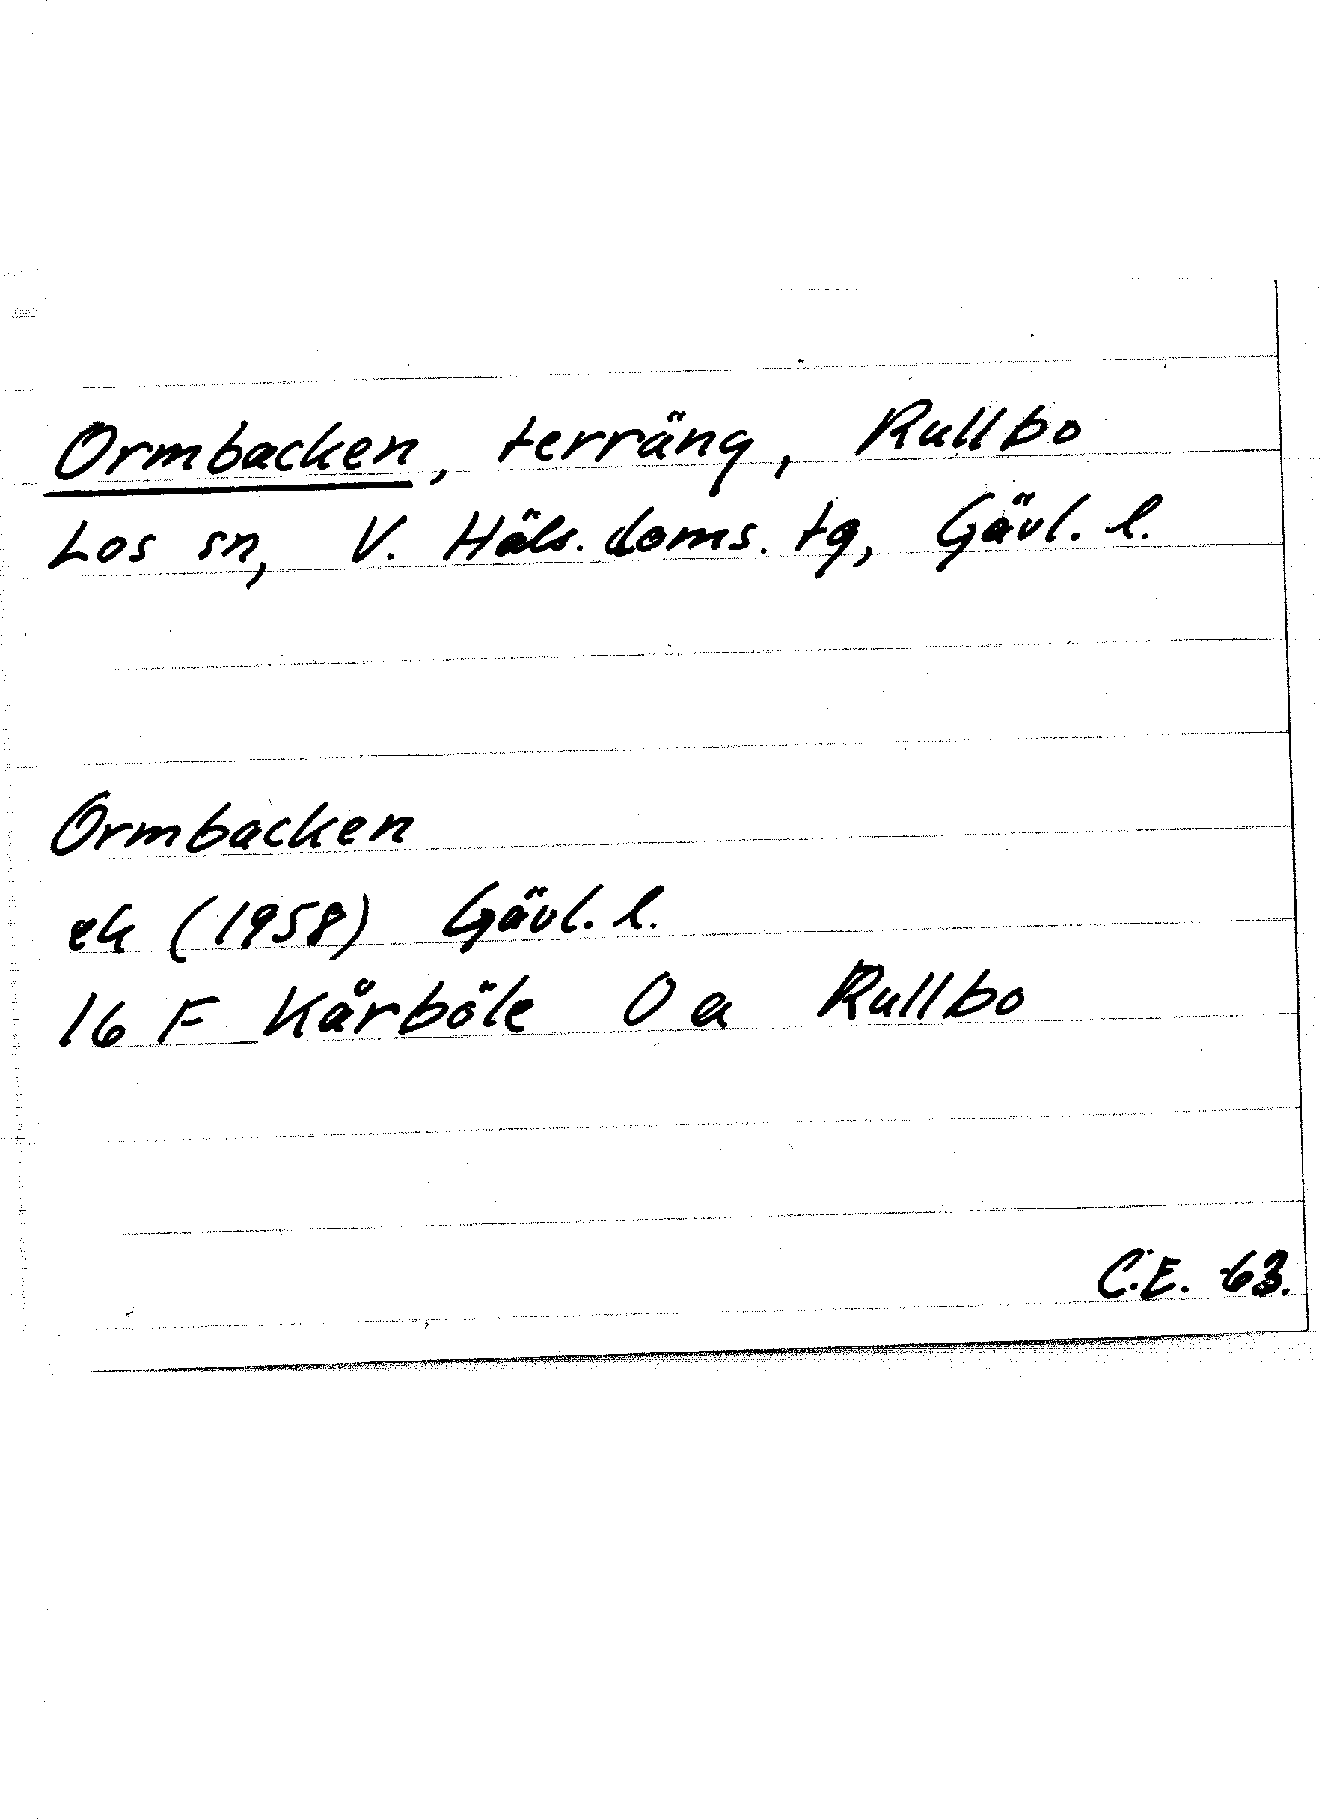 Ormbacken, terräng, Rullbo
Los sn, V. Häls. doms. tg, Gävl. l.
Ormbacken
ek (1958) Gävl. l.
16 F Kårböle 0 a Rullbo
C.E. -63.